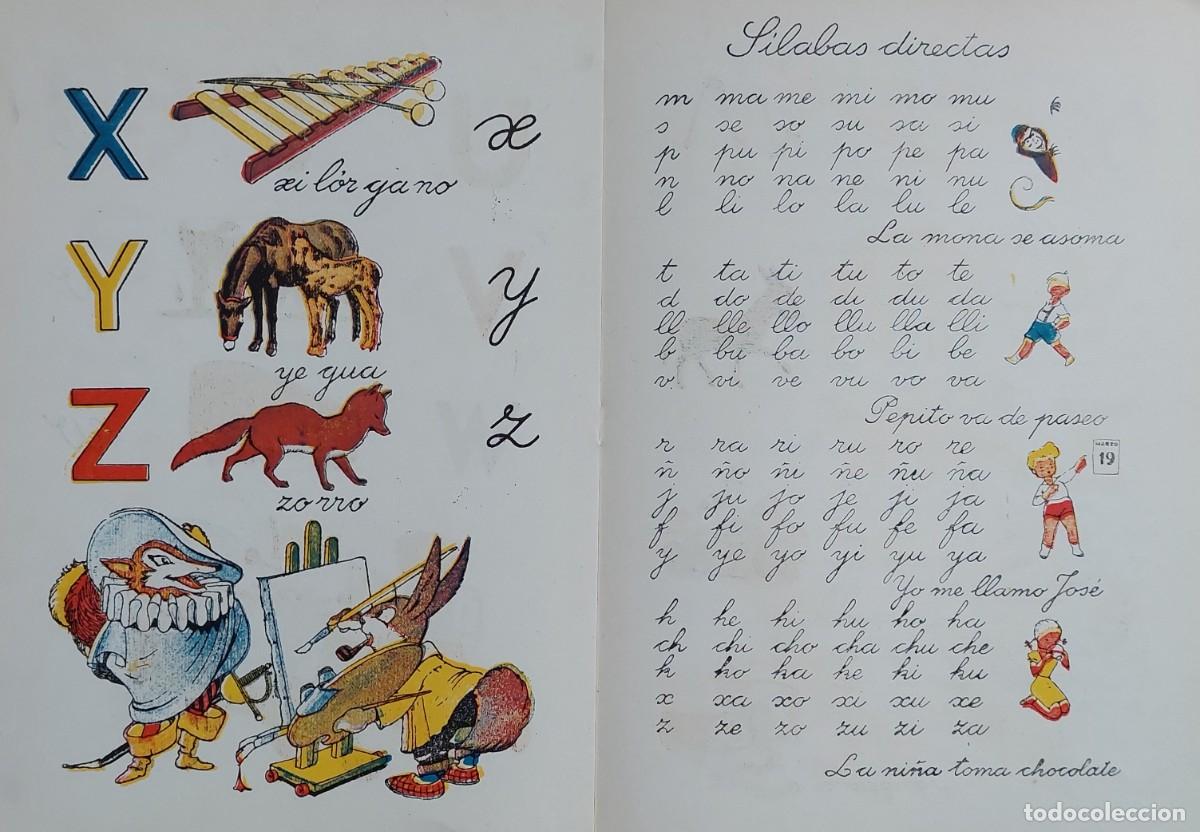 X x
xi lór ga no
Y y
ye gua
Z z
zo rro
Sílabas directas
m ma me mi mo mu
s se so su sa si
p pu pi po pe pa
n no na ne ni nu
l li lo la lu le
La mona se asoma
t ta ti tu to te
d do de di du da
ll lle llo llu lla lli
b bu ba bo bi be
v vi ve vu vo va
Pepito va de paseo
r ra ri ru ro re
MARZO
19
ñ ño ñi ñe ñu ña
j ju jo je ji ja
f fi fo fu fe fa
y ye yo yi yu ya
Yo me llamo José
h he hi hu ho ha
ch chi cho cha chu che
k ko ka ke ki ku
x xa xo xi xu xe
z ze zo zu zi za
La niña toma chocolate
todocoleccion